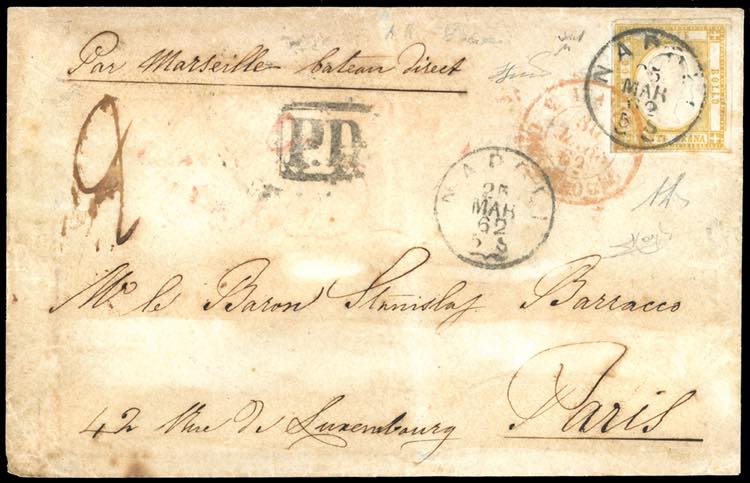 Par Marseille bateau direct
NAPOLI
25
MAR
62
5 S
BOLLO
P.D.
2
NAPOLI
25
MAR
62
5 S
Mr le Baron Stanislas Barracco
42 Rue de Luxembourg Paris